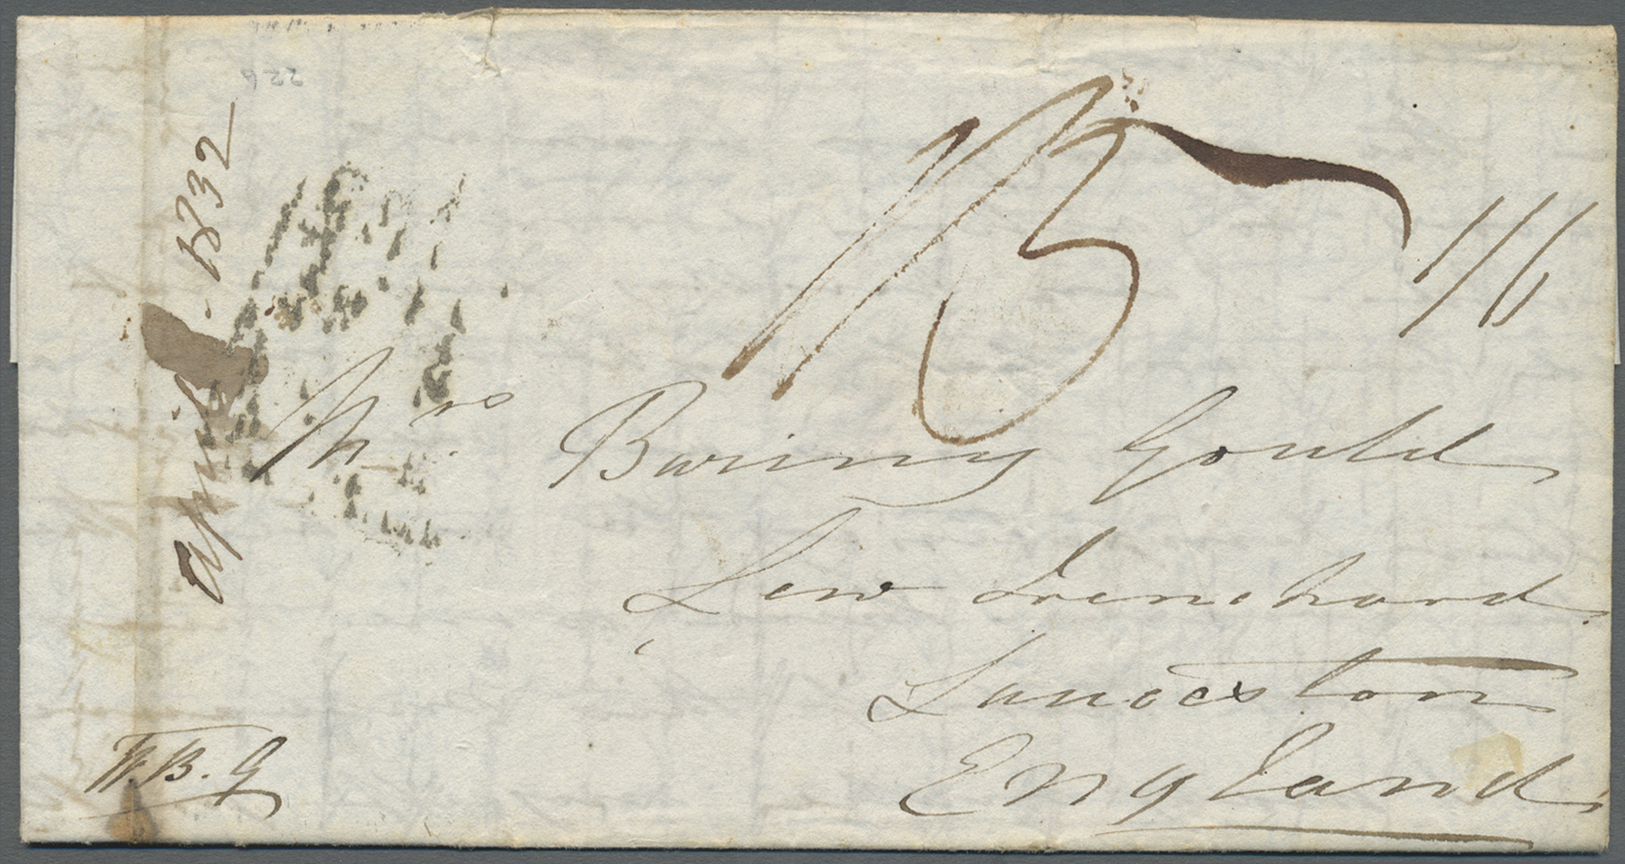 april 1832
226
1/3
1/6
Mrs Baring Gould
Lew Trenchard
Lanceston
England
W. B. G